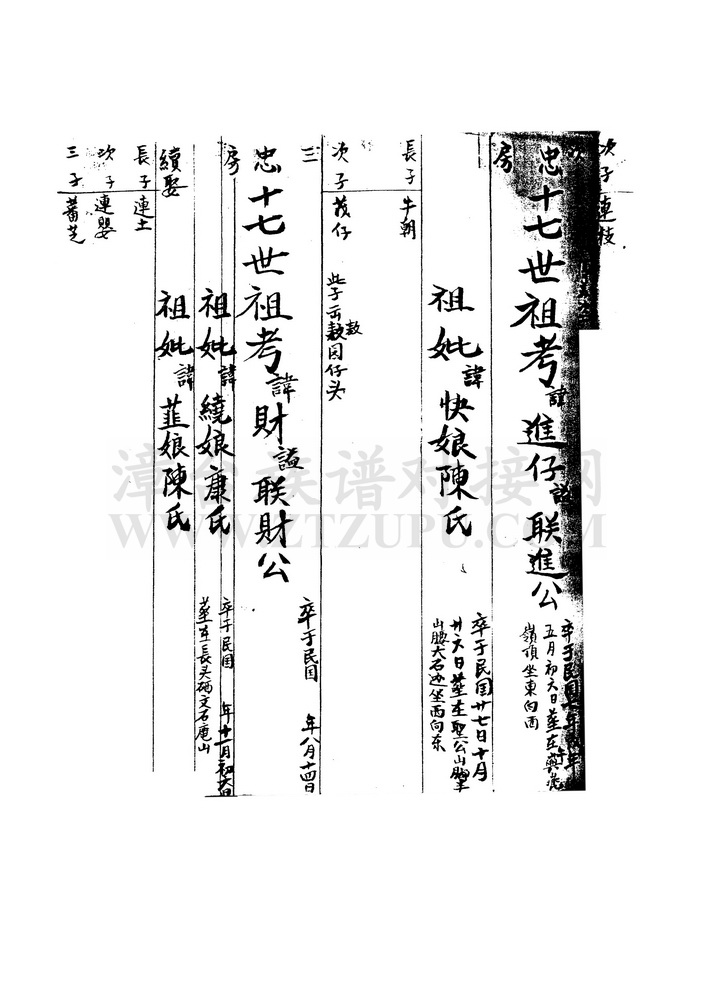 次子 連枝
忠十七世祖考諱進仔諡联進公
房
卒于民国
五月初六日葬在
嶺頂坐東向西
祖妣諱快娘陳氏
卒于民国廿七日十月
廿六日葬在聖公山脚
山腰大石边坐西向东
長子 牛朝
次子 茂仔
此子
仔头
三
忠十七世祖考諱財諡联財公
房
卒于民国 年八月十四日
祖妣諱繞娘康氏
卒于民国 年十一月初六日
葬在長头硒文石庵山
續娶
祖妣諱韮娘陳氏
長子 連土
次子 連嬰
三子 蕃芝
漳台族谱对接网
WWW.ZTZUPU.COM